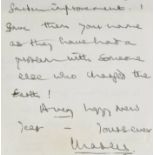 improvement!
them your name
as they have had a
problem with someone
else who changed the
Earth!
A very happy new
year - Yours ever